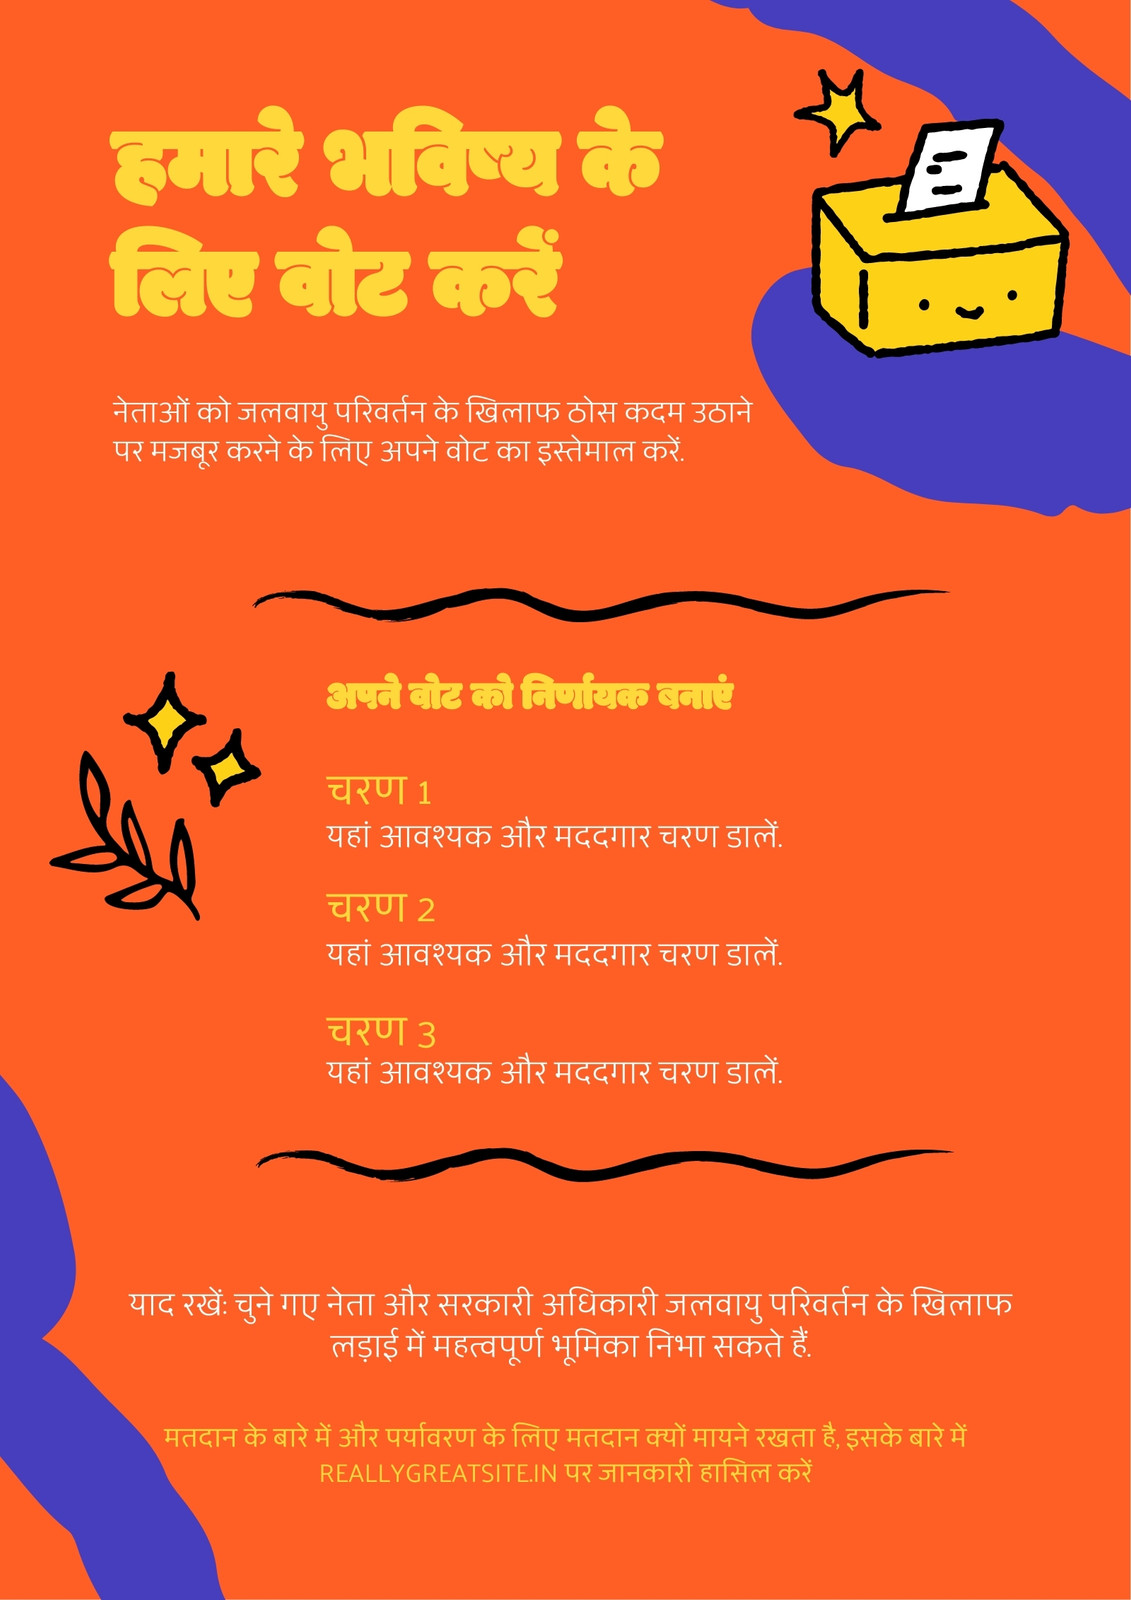 हमारे भविष्य के
लिए वोट करें
नेताओं को जलवायु परिवर्तन के खिलाफ ठोस कदम उठाने
पर मजबूर करने के लिए अपने वोट का इस्तेमाल करें.
अपने वोट को निर्णायक बनाएं
चरण 1
यहां आवश्यक और मददगार चरण डालें.
चरण 2
यहां आवश्यक और मददगार चरण डालें.
चरण 3
यहां आवश्यक और मददगार चरण डालें.
याद रखें: चुने गए नेता और सरकारी अधिकारी जलवायु परिवर्तन के खिलाफ
लड़ाई में महत्वपूर्ण भूमिका निभा सकते हैं.
मतदान के बारे में और पर्यावरण के लिए मतदान क्यों मायने रखता है, इसके बारे में
REALLYGREATSITE.IN पर जानकारी हासिल करें